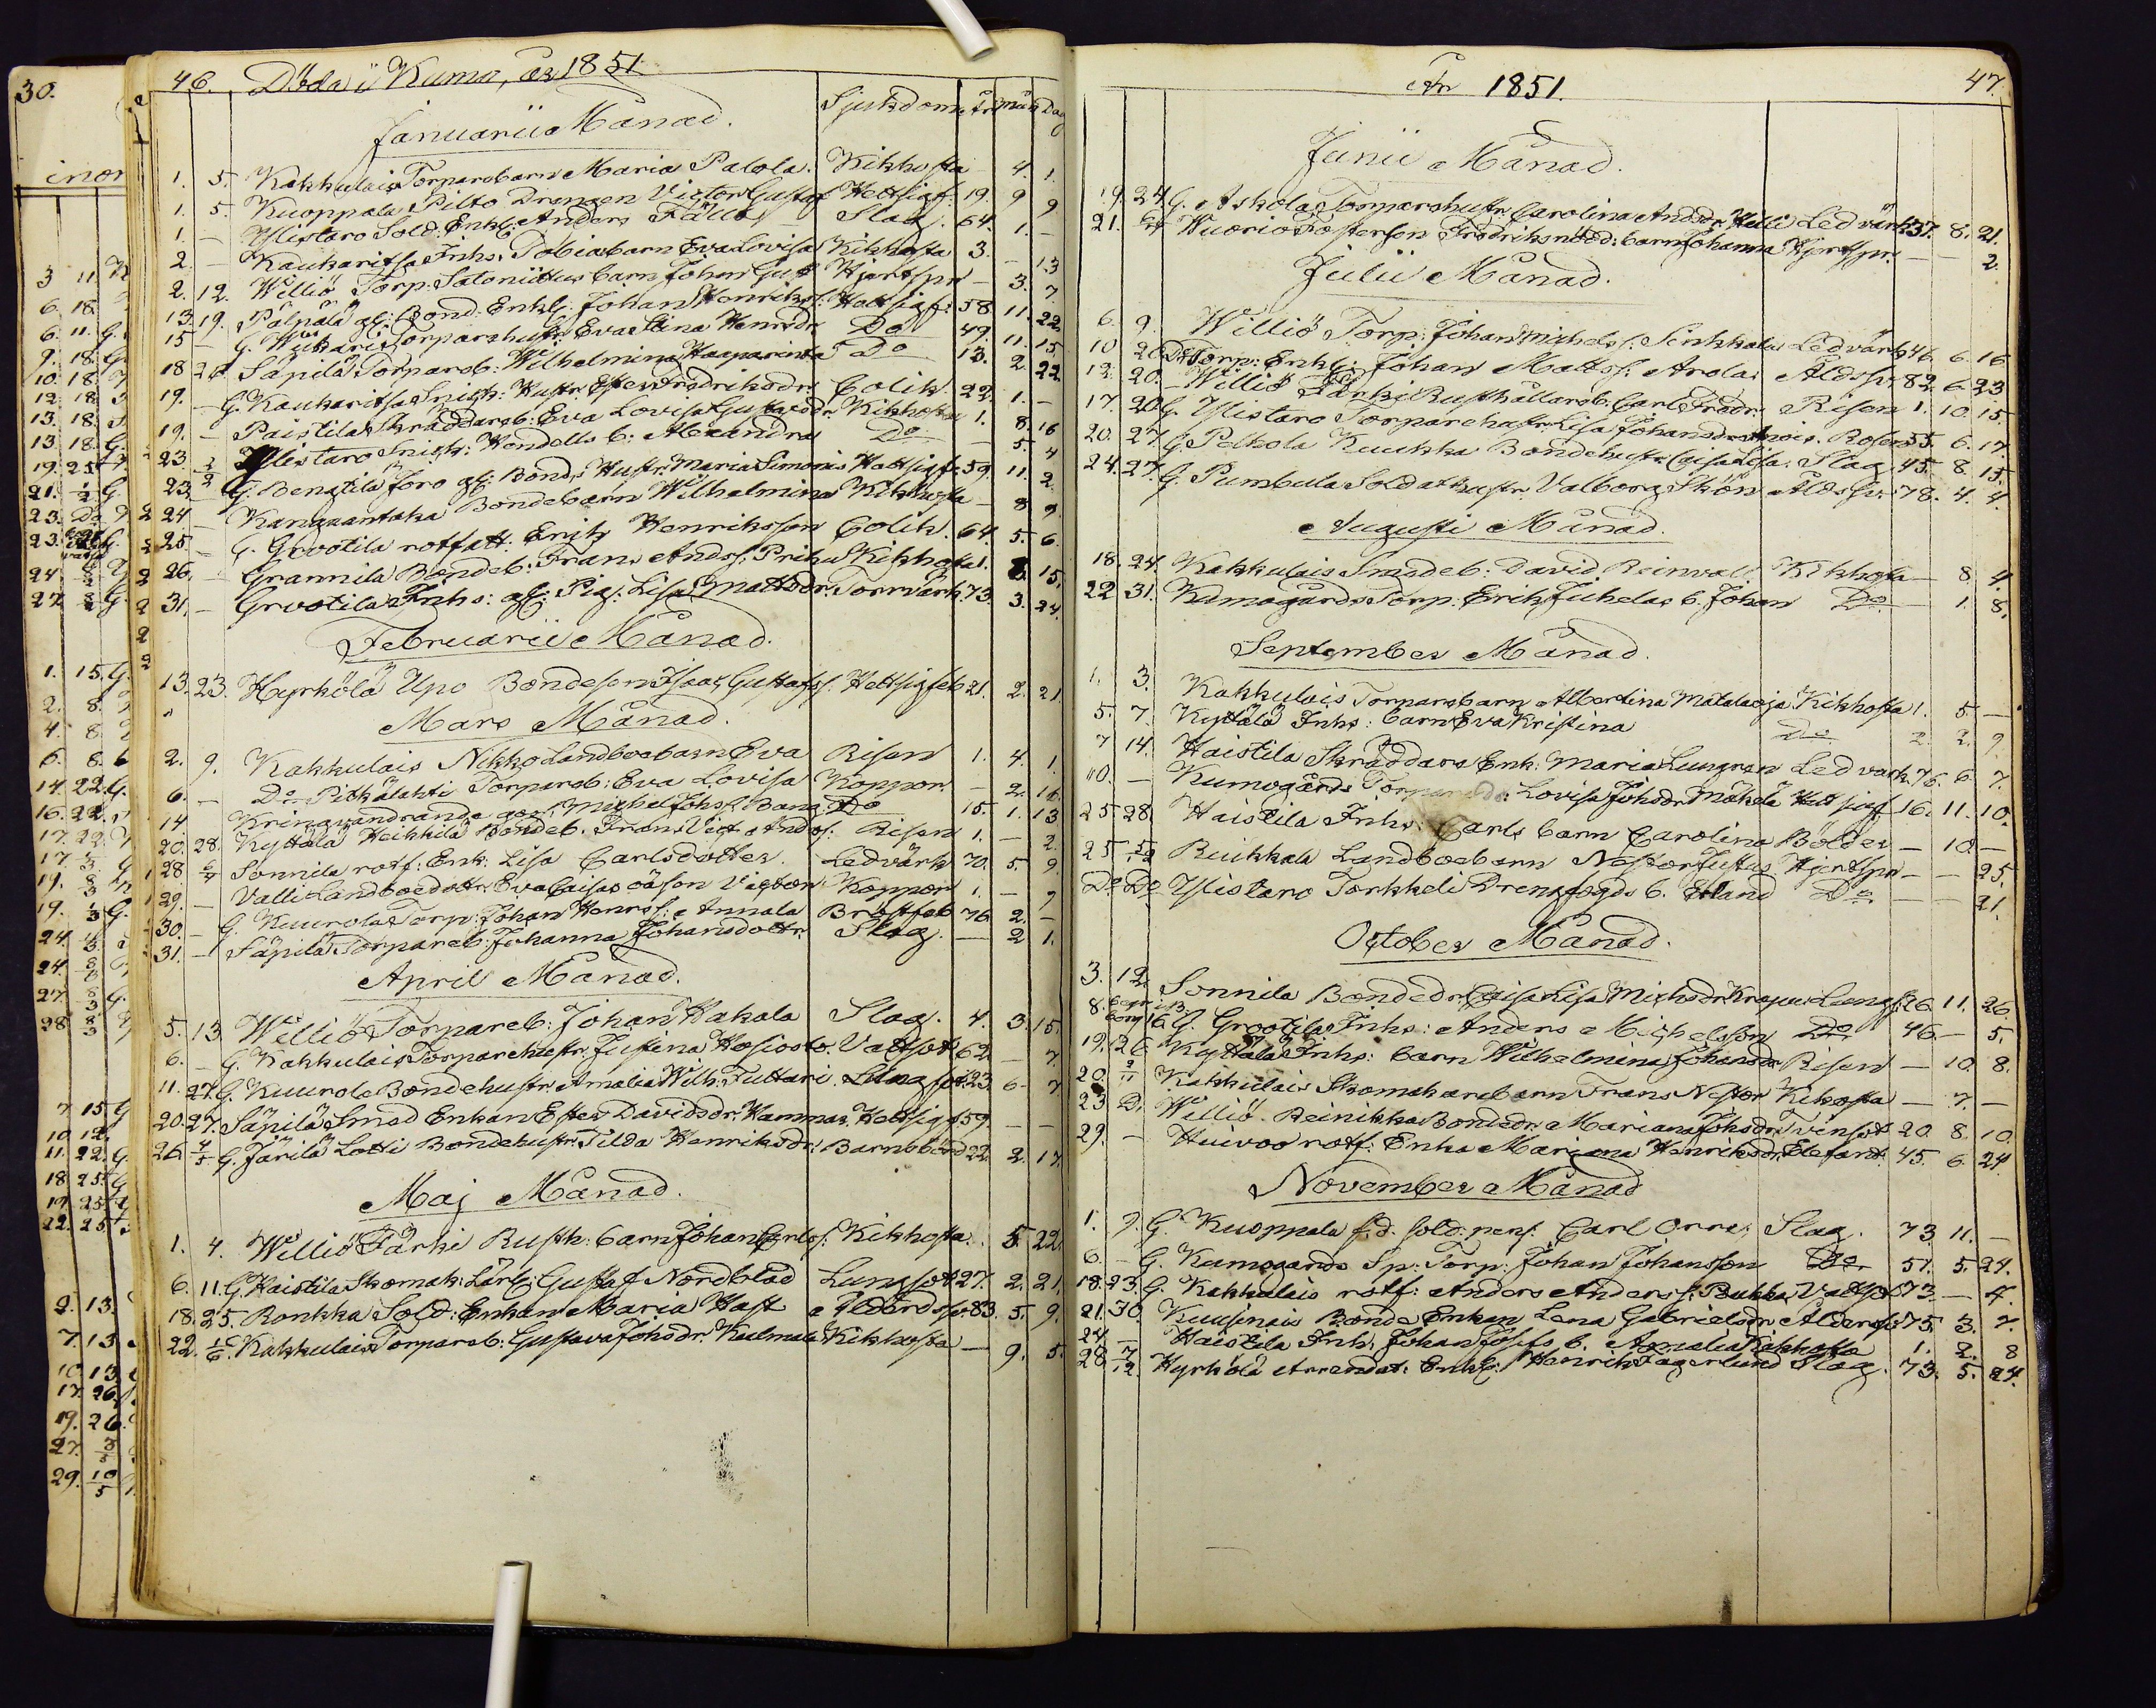 46. Döda i Kumo, år 1851
Sjukdom År Mån Dag
Januarii Månad.
1. 5. Kakkulais Torparebarn Maria Palola. Kikhosta - 4. 1.
1. 5. Kuoppala Pilto Drengen Victor Gustaf Hettsigf. 19. 9 9
1. - Ylistaro Sold: Enkl: Anders Fällb Slag. 64. 1. -
2. - Kaukaritsa Inhs: Tobiæbarn Eva Lovisa Kikhosta 3. - 13
2. 12. Williö Torp: Saloniittus barn Johan Gust Hjertspn - 3. 7.
13. 19. Pälpälä gl: Bond: Enkl: Johan Henrikss. Hettsigf. 58. 11. 22.
15 - G. Torparehustr: Eva Stina Henrsdr Do 49. 11. 15.
18 26 Säpilä Torpareb: Wilhelmina Haaparinta Do 13. 2. 22
19. - G. Kaukaritsa Snick: Hustr. Ester Fredriksdr Colik. 22. 1. -
19. - Paistila Skräddareb: Eva Lovisa Gustavsdr Kikhosta 1. 8. 16
23. 2/2 Ylistaro Snick: Wendells b: Alexandra Do - 5. 4
23. - G. Bengtila Joro gl: Bond: Hustr. Maria Simonis Hettsigf. 59. 11. 2.
24 - Kangaantaka Bondebarn Wilhelmina Kikhosta - 8 9
25. - G. Grootila rotfatt: Erik Henriksson Colik. 64. 5. 6.
26. - Grannila Bondeb: Frans Andss. Prihu Kikhosta 1. 15.
31. - Grootila Inhs: gl: Pig. Lisa Mattsdr. Torrvärk. 73. 3. 24.
Februarii Månad.
13. 23. Hyrkölä Upo Bondeson Isaac Gustafss. Hettsigfeb 21. 2. 21
Mars Månad.
2. 9. Kakkulais Nikko Landboebarn Eva Risen 1. 4. 1.
6. - Do Pitkälahti Torpareb: Eva Lovisa Koppor. - 2. 16.
14 Kringvandrande Michel Johss. Bang Do 15. 1. 13
20. 28. Kyttälä Heikkilä Bondeb. Frans Vict. Andss. Risen 1. - 2.
28 6/4 Sonnila rotf: Enk: Lisa Carlsdotter. Ledvärk 70. 5 9.
29. - Valli Landboedottr. Eva Caisas oäson Victor Koppor 1. - 9
30. - G. Kuurola Torp: Johan Henrss: Annala Bröstfeb 76 2. -
31. - Säpilä Torpareb: Johanna Johansdottr. Slag. - 2 1.
April Månad.
5. 13. Williö Torpareb: Johan Hakala Slag. 4. 3. 15.
6. - G. Kakkulais Torparehustr. Justina Hosiosto. Vattsot 62 - 7.
11. 27. G. Kuurola Bondehustr. Amalia Wilh: Tuttari. Lungsot 23. 6. 7
20. 27. Säpilä Smed Enkan Ester Davidsdr. Hammar. Hettsigf 59. - -
26. 4/5 G. Järilä Lotti Bondehustr. Tilda Henriksdr. Barnsbörd 22. 2. 17.
Maj Månad.
1. 4. Williö Parki Rusth: barn Johan Carlss. Kikhosta. 5. 22.
6. 11. G. Haistila Skomak: Lärl: Gustaf Nordblad Lungsot 27. 2. 21.
18. 25. Ronkka Sold: Enkan Maria Hast Ålderdsv. 83. 5. 9.
22. 1/6 Kakkulais Torpareb: Gustava Johsdr. Kulmala Kikhosta - 9. 5.
År 1851. 47.
Junii Månad.
19. 24. G. Askola Torparehustr. Carolina Andsdr. Ledvärk 37. 8. 21.
21. Wuorio Fosterson Fredriksnöös: barn Johanna Hjertspn - - 2.
Julii Månad.
6. 9. Williö Torp: Johan Michelss. Sinkkala Ledvärk 46 6. 16
10 20 Do Torp: Enkl: Johan Mattss. Arola Åldsv. 82. 6. 23
12. 20. - Williö Parki Rusthållareb: Carl Fredr. Risen 1. 10. 15
17. 20 G. Ylistaro Torparehustr. Lisa Johansdr Rosen 55. 6. 17.
20. 27. G. Pelkola Kuukka Bondehustr. Caisa Lisa. Slag. 45. 8 15.
24. 27. G. Pumbula Soldathustr. Valborg Skön Åldsv. 78. 4. 4.
Augusti Månad.
18. 24. Kakkulais Smedeb: David Reinvall Kikhosta - 8. 4.
22 31. Kumogårds Torp: Erik Juhelas b. Johan Do. - 1. 8.
September Månad.
1. 3. Kakkulais Torparebarn Albertina Matalaoja Kikhosta 1. 5. -
5. 7. Kyttälä Inhs: barn Eva Kristina Do 2. 2. 9.
7 14. Haistila Skräddare Enk: Maria Lungren Ledvärk. 76. 6. 7.
10. - Kumogårds Torparedr: Lovisa Johsdr Mäkelä Hettsigf 16. 11. 10.
25 28. Haistila Inhs: Carls barn Carolina Bölder - 10. -
25 5/10 Ruikkala Landboebarn Nestor Justus Hjertspn - - 25.
Do Do Ylistaro Torkkeli Drengfogds b. Erland Do. - - 21.
October Månad.
3. 12. Sonnila Bondedr. Caisa Lisa Michsdr. Krapu Lungs. 26. 11. 26.
8. 16. G. Grootila Inhs: Anders Michelsson Do 46. - 5.
19. 26. Kyttälä Inhs: barn Wilhelmina Johansdr Risen - 10. 8.
20. 2/11 Kakkulais Skomakarebarn Frans Nestor Kikhosta - 7. -
23 D. Williö Reinikka Bondedr. Mariana Johsdr Tvinsot 20. 8. 10.
29. - Huivoo rotf: Enka Mariana Henriksdr. Elefant. 45. 6. 24
November Månad
1. 9. G. Kuoppala f.d. sold: pens. Carl Orre. Slag. 73. 11. -
6. - G. Kumogårds Sp: Torp: Johan Johansson Do. 51. 5. 24.
18. 23. G. Kakkulais rotf: Anders Anderss. Pukka Vattsot 73. - 4.
21. 30. Kuusinais Bonde Enkan Lena Gabrielsdr Ålderdsv. 75. 3. 7.
24. - Haistila Inh: Johan Josefs b. Amalia Kikhosta 1. 2. 8
28 7/12. Hyrkölä Arrendat: Enkl: Henrik Fagerlund Slag. 73. 5. 24.